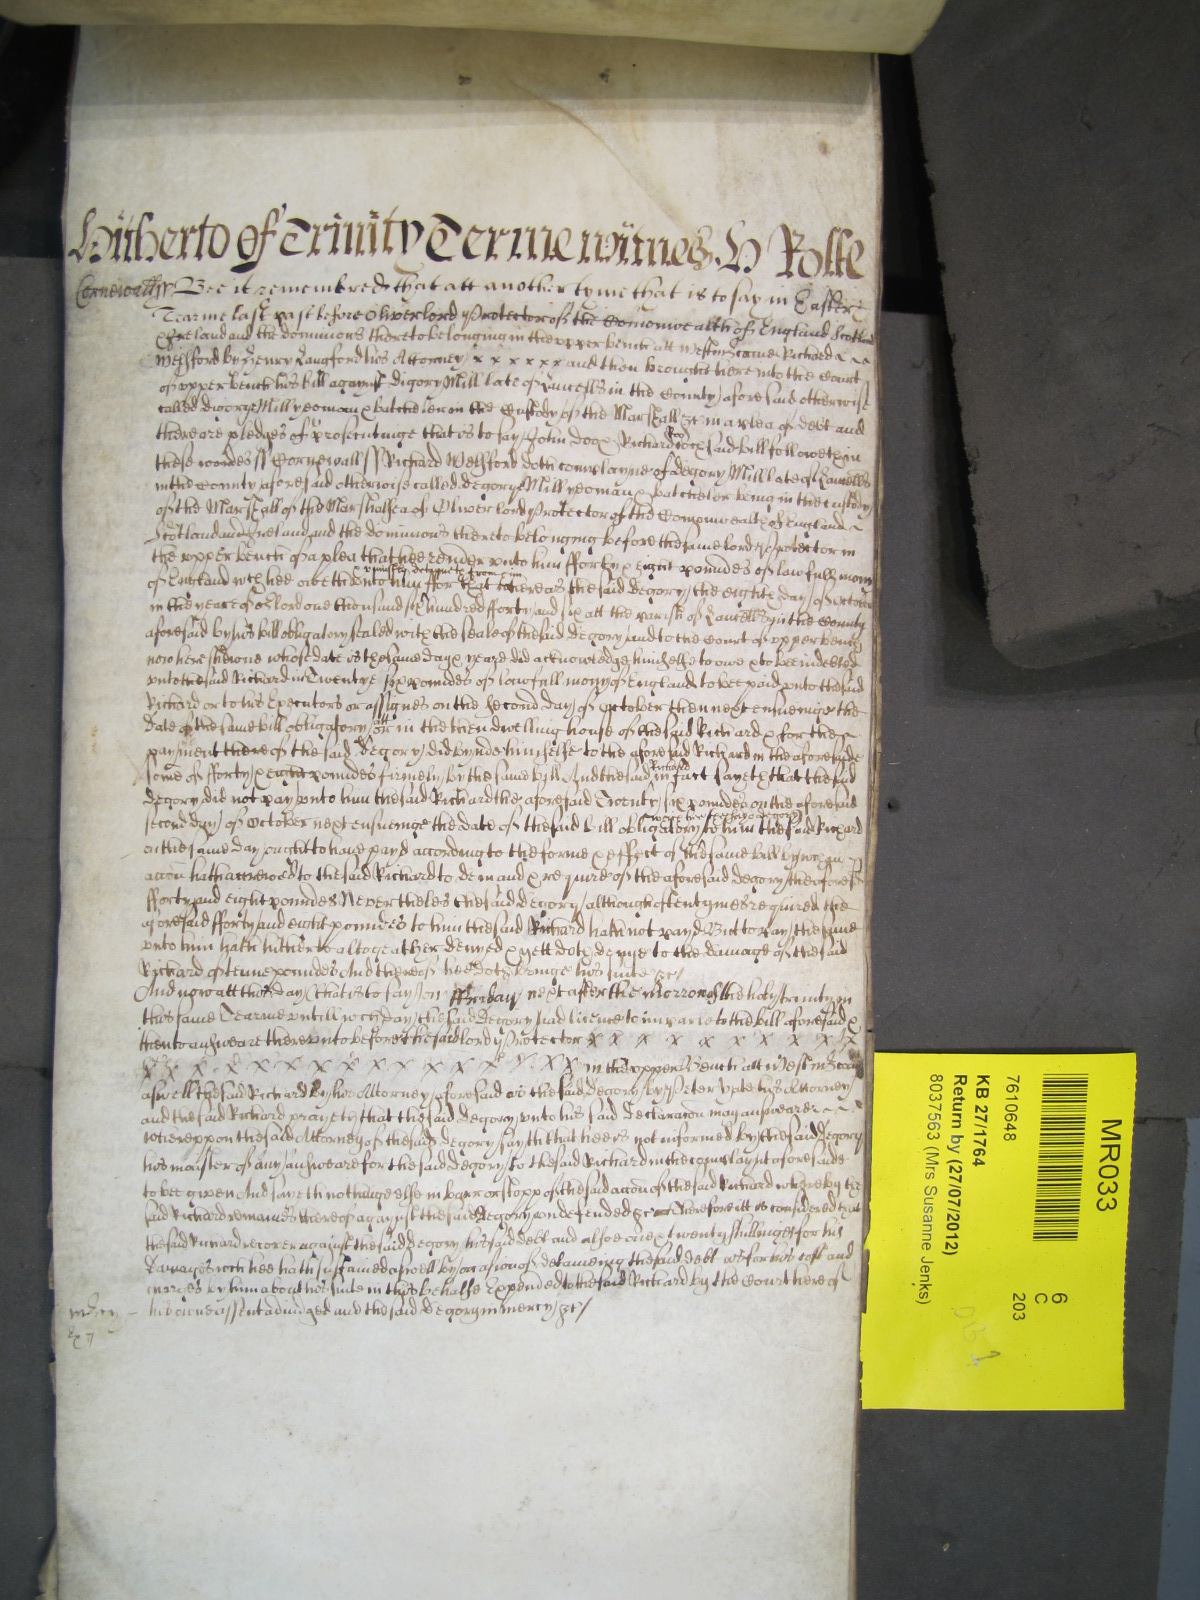 Hitherto of Trinity Terme witnes H Rolle
Cornewall ss Bee it remembred that att another tyme that is to say in Easter
Tearme last past before Oliver lord Protector of the Comonwealth of England Scotland
Ireland and the dominions thereto belonging in the upper bench att Westm came Richard
Welsford by Henry Langford his Attorney x x x x x x and then brought here into the Court
of upper bench his bill against Digory Mill late of in the County aforesaid otherwise
called Degorye Mill yeoman & batcheler in the Custody of the Marshall &c in a plea of debt and
there are pledges of prosecutinge that is to say John Doo & Richard Roo wch said bill followeth in
these wordes ss Cornewall ss Richard Welsford doth complayne of Degory Mill late of
in the County aforesaid otherwise called Degorye Mill yeoman & batcheler being in the custody
of the Marshall of the Marshalsea of Oliver lord Protector of the Comonwealth of England
Scotland and Ireland and the dominions thereto belonging before the same lord Protector in
the upper bench of a plea that hee render unto him fforty & eight poundes of lawfull mony
of England wch hee oweth unto him & uniustly deteyneth from him ffor that whereas the said Degory the eighth day of October
in the yeare of or lord one thousand six hundred fforty and six att the parish of in the County
aforesaid by his bill obligatory sealed with the seale of the said Degory and to the Court of upper bench
now here shewne whose date is the same day & yeare did acknowledge himselfe to owe & to bee indebted
unto the said Richard in Twentye six poundes of lawfull mony of England to bee paid unto the said
Richard or to his Executors or assignes on the second day of October then next ensueinge the
date of the same bill obligatory att or in the then dwelling house of the said Richard & for the
payment thereof the said Degory did bynde himselfe to the aforesaid Richard in the aforesaide
some of fforty & eight poundes firmely by the same bill And the said Richard in fact sayeth that the said
Degory did not pay unto him the said Richard the aforesaid Twenty six poundes on the aforesaid
second day of October next ensueinge the date of the said bill obligatory to him the said Richard
on the same day ought to have payd according to the forme & effect of the same bill by wch an
accon hath accrewed to the said Richard to demand & require of the aforesaid Degory the aforesd
fforty and eight poundes Neverthelesse the said Degory although oftentymes required the
aforesaid fforty and eight poundes to him the said Richard hath not payd But to pay the same
unto him hath hitherto altogeather denyed & yett doth denye to the damage of the said
Richard of tenne poundes And thereof hee doth bringe his suite &c
And now att this day that is to say on ffriday next after the Morrow of the holy trinity in
this same Tearme untill wch day the said Degory had licence to imparle to the bill aforesaid &
then to answeare thereunto before the said lord Protector x x x x x x x x x
x x x x x x x x x x x x x x in the upper bench att Westm came
aswell the said Richard by his Attorney aforesaid as the said Degory by Peter his Attorney
and the said Richard prayeth that the said Degory unto his said declaracon may answeare
Whereuppon the said Attorney of the said Degory sayth that hee is not informed by the said Degory
his maister of any answeare for the said Degory to the said Richard in the complaynt aforesaide
to bee given And sayeth nothinge else in barr or stopp of the said accon of the said Richard whereby the
said Richard remaines thereof against the said Degory undefended &c Therefore itt is considered that
the said Richard recover against the said Degory his said debt and alsoe one & twenty shillinges for his
damages wch hee hath sustained aswell by occasion of detaineing the said debt as for his cost and
charges by him about his suite in this behalfe Expended to the said Richard by the Court here of
his owne assent adiudged and the said Degory in mercy &c/
mercy
MR033
6
C
203
7610648
KB 27/1764
Return by (27/07/2012)
8037563 (Mrs Susanne Jenks)